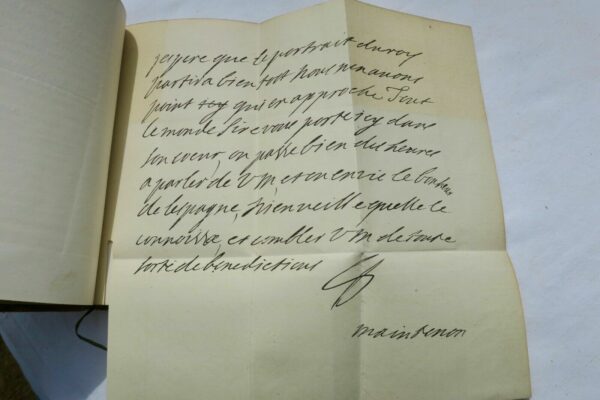 jespere que le portrait du roy
partira bien tost Nous nen avons
point icy qui en approche Tout
le monde Sire vous porte icy dans
son coeur, on passe bien des heures
a parler de V m, et on envie le bonheur
de lespagne, Dieu veille quelle le
connoisse, et combler V m de toute
sorte de benedictions
maintenon